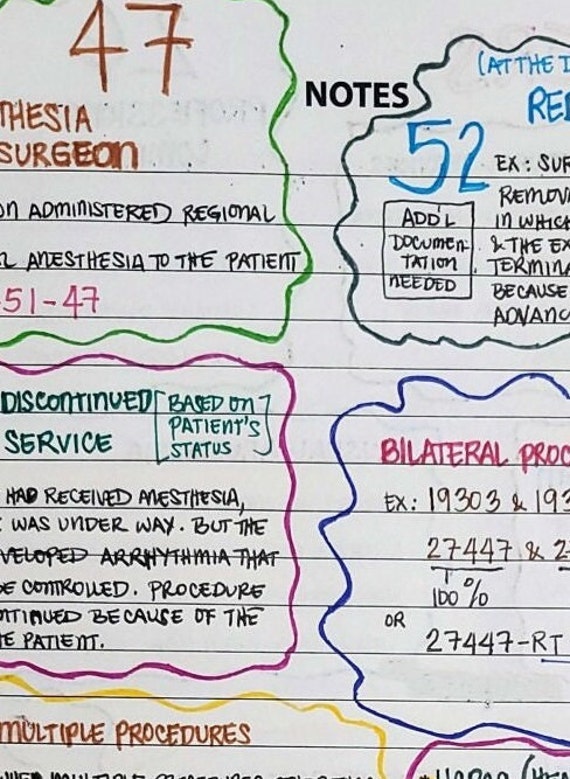 47
NOTES
THESIA
SURGEON
ON ADMINISTERED REGIONAL
ANESTHESIA TO THE PATIENT
51-47
(AT THE
52
EX: SUR
REMOVA
IN WHICH
& THE EX
TERMINA
BECAUSE
ADVANC
ADD'L
DOCUMEN-
TATION
NEEDED
DISCONTINUED
SERVICE
BASED ON
PATIENT'S
STATUS
HAD RECEIVED ANESTHESIA,
WAS UNDER WAY. BUT THE
VELOPED ARRHYTHMIA THAT
BE CONTROLLED. PROCEDURE
NTINUED BECAUSE OF THE
E PATIENT.
BILATERAL PROC
EX: 19303 & 193
27447 & 2
100%
OR
27447-RT
MULTIPLE PROCEDURES